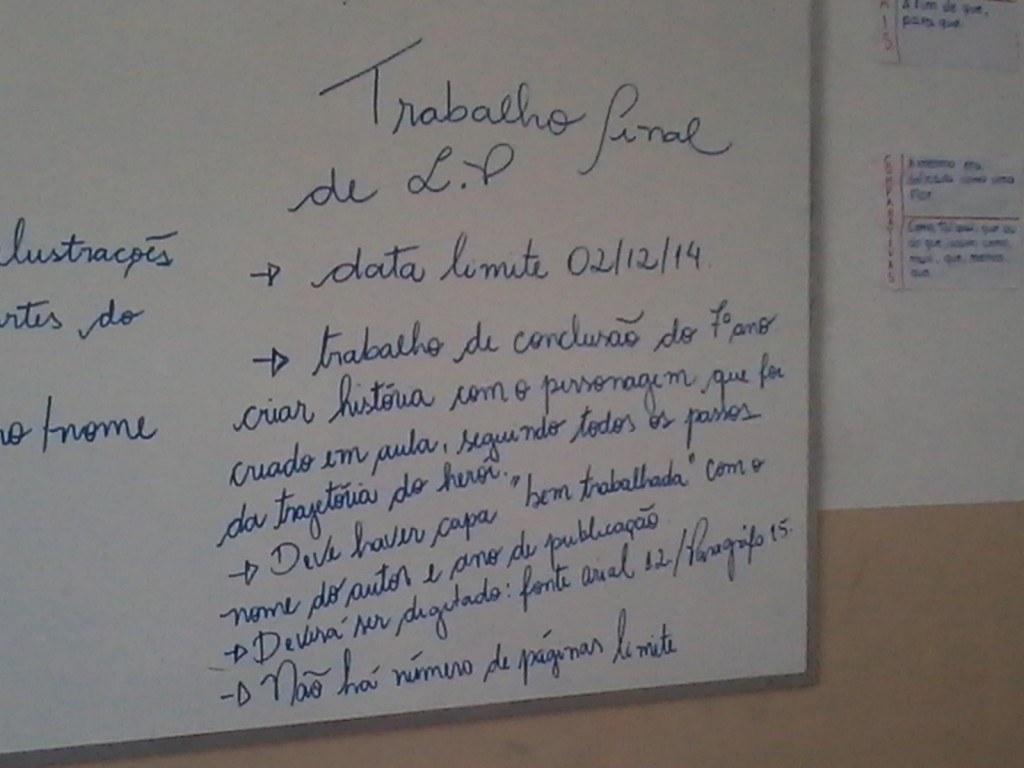 Trabalho final
de L.P
→ data limite 02/12/14
→ trabalho de conclusão do 7º ano
criar história com o personagem que foi
criado em aula, seguindo todos os passos
da trajetória do herói.
→ Deve haver capa "bem trabalhada" com o
nome do autor e ano de publicação
→ Deverá ser digitado: fonte arial 12/Parágráfo 15.
→ Não há número de páginas limite
lustrações
rtes do
o/nome
A fim de que,
para que
A menina era
delicada como uma
flor
Como, tal qual, que ou
do que, assim como,
mais, que, menos,
que